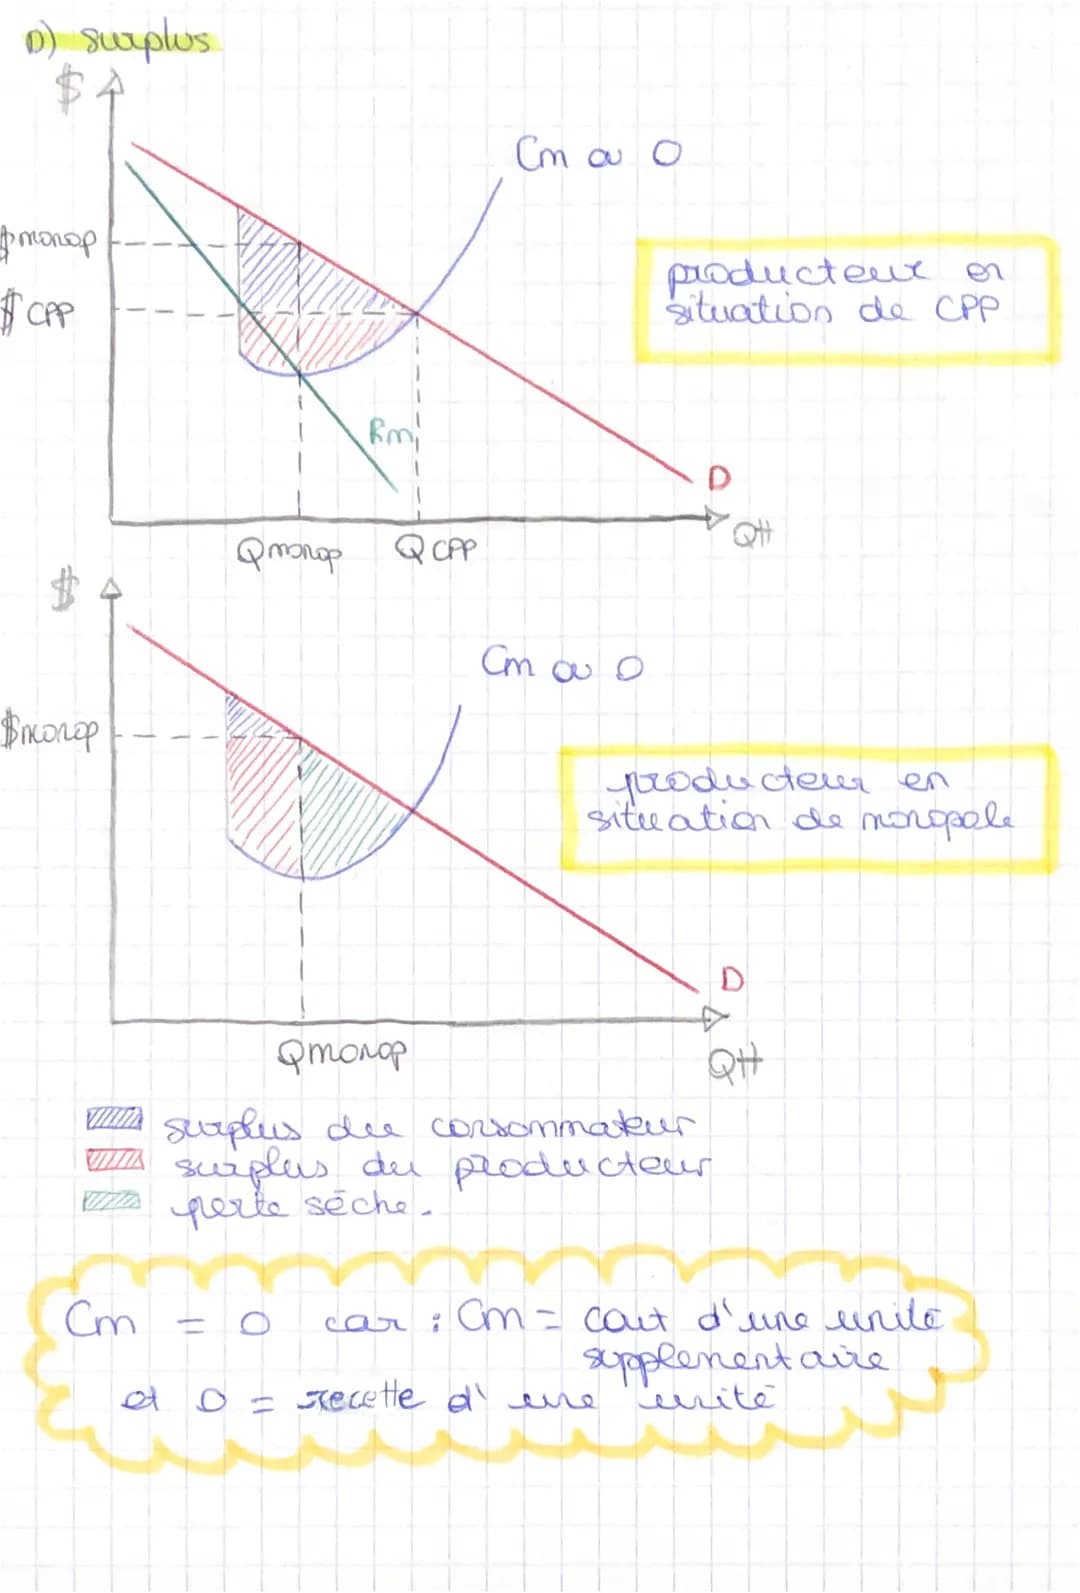 D) surplus
$
Cm ou O
$monop
$ CPP
producteur en
situation de CPP
Rm
D
Qmonop
Q CPP
QH
$
Cm ou O
$monop
producteur en
situation de monopole
D
Qmonop
QH
surplus du consommateur
surplus du producteur
perte sèche.
Cm = O car : Cm = cout d'une unité
supplementaire
et O = recette d'une unité